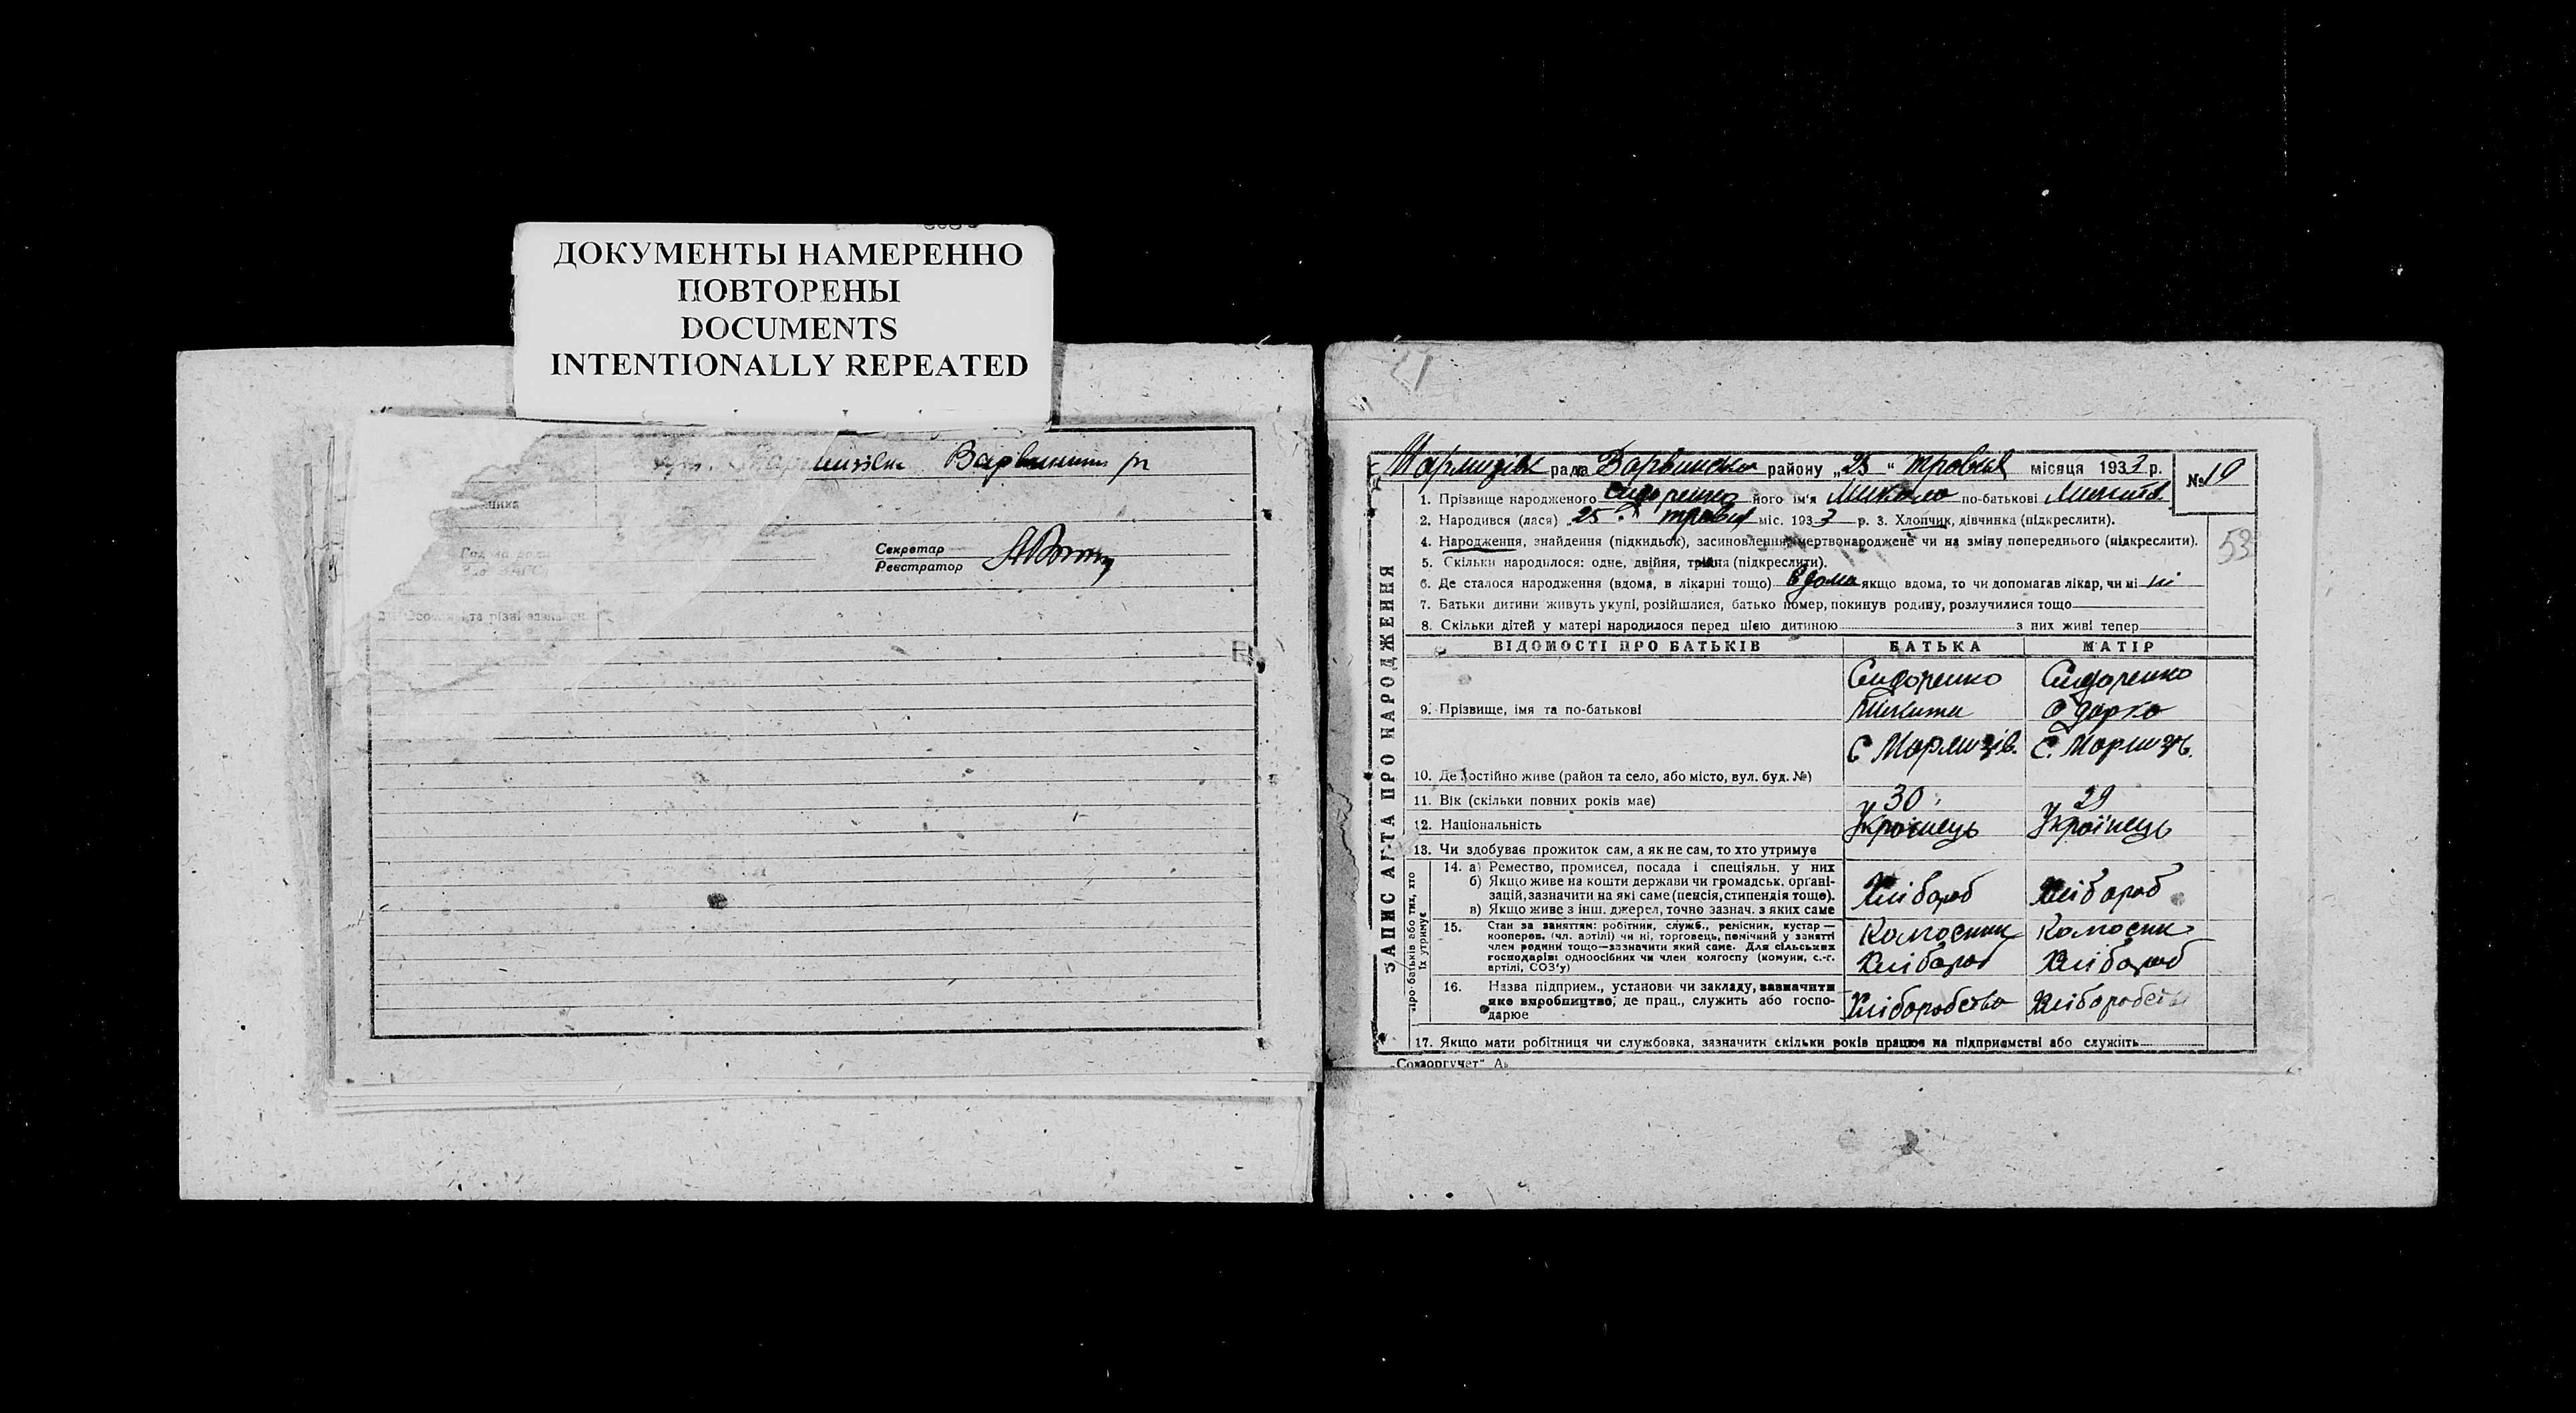 ДОКУМЕНТЫ НАМЕРЕННО
ПОВТОРЕНЫ
DOCUMENTS
INTENTIONALLY REPEATED
Варвинськ р
Секретар
Реєстратор
2 Особливі та різні зазнач
рада Варвинська району „25“ травня місяця 1933 р.
№ 19
53
ЗАПИС АКТА ПРО НАРОДЖЕННЯ
1. Прізвище народженого Сидоренко його ім'я Микола по-батькові Микита
2. Народився (лася) „25“ травня міс. 1933 р. 3. Хлопчик, дівчинка (підкреслити).
4. Народження, знайдення (підкидьок), засиновлення, мертвонароджене чи на зміну попереднього (підкреслити).
5. Скільки народилося: одне, двійня, трійня (підкреслити).
6. Де сталося народження (вдома, в лікарні тощо) вдома якщо вдома, то чи допомагав лікар, чи ні ні
7. Батьки дитини живуть укупі, розійшлися, батько помер, покинув родину, розлучилися тощо
8. Скільки дітей у матері народилося перед цією дитиною з них живі тепер
ВІДОМОСТІ ПРО БАТЬКІВ БАТЬКА МАТІР
Сидоренко Сидоренко
9. Прізвище, імя та по-батькові Микита Одарка
10. Де постійно живе (район та село, або місто, вул. буд. №)
11. Вік (скільки повних років має) 30 29
12. Національність Українець Українець
13. Чи здобуває прожиток сам, а як не сам, то хто утримує
Про батьків або тих, хто їх утримує
14. а) Ремество, промисел, посада і спеціяльн. у них
б) Якщо живе на кошти держави чи громадськ. організацій, зазначити на які саме (пенсія, стипендія тощо).
в) Якщо живе з інш. джерел, точно зазнач. з яких саме
Хлібороб Хлібороб
15. Стан за заняттям: робітник, служб., ремісник, кустар—
кооперов. (чл. артілі) чи ні, торговець, помічний у занятті
член родини тощо—зазначити який саме. Для сільських
господарів: одноосібних чи член колгоспу (комуни, с.-г.
артілі, СОЗ'у)
Колгоспник Колгоспник
Хлібороб Хлібороб
16. Назва підприєм., установи чи закладу, зазначити
яке виробництво, де прац., служить або господарює
Хліборобство Хліборобство
17. Якщо мати робітниця чи службовка, зазначити скільки років працює на підприємстві або служить